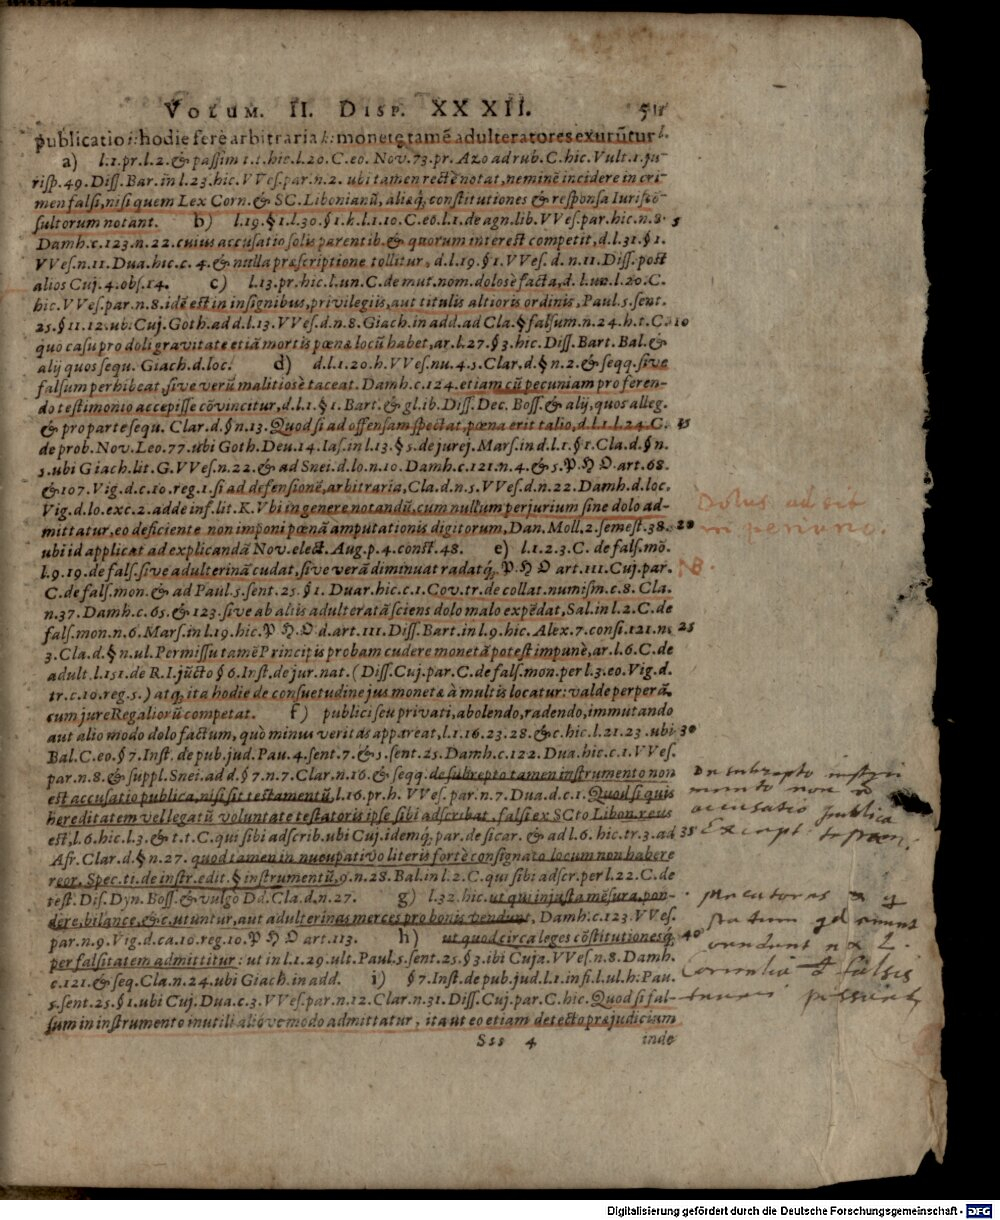 VOLUM. II. DISP. XXXII.
publicatio i: hodie ferè arbitraria k: monetę tamẽ adulteratores exurũtur l.
a) l.1.pr.l.2.& paſſim t.t.hic.l.20.C.eo.Nov.73.pr.Azo ad rub.C.hic.Vult.1.ju-
riſp.49.Diſſ.Bar.in l.23.hic.VVeſ.par.n.2. ubi tamen rectè notat, neminẽ incidere in cri-
men falſi, niſi quem Lex Corn.& SC. Libonianũ, aliaq́, conſtitutiones & reſponſa Iuriſcõ-
ſultorum notant. b) l.19.§1.l.30.§1.k.l.1.10.C.eo.l.1.de agn.lib.VVeſ.par.hic.n.8. 5
Damh.c.123.n.22. cuius accuſatio ſolis parentib.& quorum intereſt competit, d.l.31.§1.
VVeſ.n.11.Dua.hic.c. 4.& nulla præſcriptione tollitur, d.l.19.§1.VVeſ. d. n.11. Diſſ. poſt
alios Cuj.4.obſ.14. c) l.13.pr.hic.l.un.C.de mut.nom.doloſè facta, d.l.un.l.20.C.
hic.VVeſ.par.n.8. idẽ eſt in inſignibus, privilegiis, aut titulis altioris ordinis, Paul.5.ſent.
25.§11.12.ubi Cuj.Goth.ad d.l.13.VVeſ.d.n.8.Giach.in add.ad Cla.§falſum.n.24.h.t.C. 10
quo caſu pro doli gravitate etiã mortis pœna locũ habet, ar.l.27.§3.hic.Diſſ.Bart.Bal.&
alij quos ſequ. Giach.d.loc. d) d.l.1.20.h.VVeſ.nu.4.5.Clar.d.§n.2.& ſeqq.ſive
falſum perhibeat, ſive verũ malitioſè taceat. Damh.c.124. etiam cũ pecuniam pro feren-
do teſtimonio accepiſſe cõvincitur, d.l.1.§1.Bart.& gl.ib.Diſſ.Dec.Boſſ.& alij, quos alleg.
& pro parte ſequ. Clar.d.§n.13. Quod ſi ad offenſam ſpectat, pœna erit talio, d.l.1.l.24.C. 15
de prob.Nov.Leo.77.ubi Goth.Deu.14.Iaſ.in l.13.§5.de jurej.Marſ.in d.l.1.§1.Cla.d.§n.
5.ubi Giach.lit.G.VVeſ.n.22.& ad Snei.d.lo.n.10.Damh.c.121.n.4.&5.P H O.art.68.
&107.Vig.d.c.10.reg.1. ſi ad defenſionẽ, arbitraria, Cla.d.n.5.VVeſ.d.n.22.Damh.d.loc.
Vig.d.lo.exc.2.adde inf.lit.K. Vbi in genere notandũ, cum nullum perjurium ſine dolo ad-
mittatur, eo deficiente non imponi pœnã amputationis digitorum, Dan.Moll.2.ſemeſt.38. 20
ubi id applicat ad explicandã Nov.elect.Aug.p.4.conſt.48. e) l.1.2.3.C.de falſ.mõ.
l.9.19.de falſ. ſive adulterinã cudat, ſive verã diminuat radatq́, P. H O art.111.Cuj.par.
C.de falſ.mon.& ad Paul.5.ſent.25.§1.Duar.hic.c.1.Cov.tr.de collat.numiſm.c.8. Cla.
n.37.Damh.c.65.&123. ſive ab aliis adulteratã ſciens dolo malo expẽdat, Sal.in l.2.C.de
falſ.mon.n.6.Marſ.in l.19.hic.P H.O d.art.111.Diſſ.Bart.in l.9.hic.Alex.7.conſi.121.n. 25
3.Cla.d.§n.ul. Permiſſu tamẽ Principis probam cudere monetã poteſt impunè, ar.l.6.C.de
adult.l.151.de R.I. jũcto §6.Inſt.de jur.nat. (Diſſ.Cuj.par.C.de falſ.mon.per l.3.eo.Vig.d.
tr.c.10.reg.5.) atq́, ita hodie de conſuetudine jus monetæ à multis locatur: valde perperã,
cum jure Regaliorũ competat. f) publici ſeu privati, abolendo, radendo, immutando
aut alio modo dolo factum, quò minus veritas appareat, l.1.16.23.28.&c.hic.l.21.23.ubi 30
Bal.C.eo.§7.Inſt. de pub.jud.Pau.4.ſent.7.&5.ſent.25.Damh.c.122.Dua.hic.c.1.VVeſ.
par.n.8.& ſuppl.Snei.ad d.§7.n.7.Clar.n.16.& ſeqq. de ſubrepto tamen inſtrumento non
eſt accuſatio publica, niſi ſit teſtamentũ, l.16.pr.h. VVeſ.par.n.7.Dua.d.c.1. Quod ſi quis
hereditatem vel legatũ voluntate teſtatoris ipſe ſibi adſcribat, falſi ex SCto Libon.reus
eſt, l.6.hic.l.3.& t.t.C.qui ſibi adſcrib.ubi Cuj.idemq́, par.de ſicar.& ad l.6.hic.tr.3.ad 35
Afr.Clar.d.§n.27. quod tamen in nuncupativo literis fortè conſignato locum non habere
reor, Spec.ti.de inſtr.edit.§inſtrumentũ, 9.n.28.Bal.in l.2.C.qui ſibi adſcr.per l.22.C.de
teſt. Diſ.Dyn.Boſſ.& vulgo Dd.Cla.d.n.27. g) l.32.hic. ut qui injuſta mẽſura, pon-
dere, bilance, &c.utuntur, aut adulterinas merces pro bonis vendunt, Damh.c.123.VVeſ.
par.n.9.Vig.d.ca.10.reg.10.P H O art.113. h) ut quod circa leges cõſtitutionesq́, 40
per falſitatem admittitur: ut in l.1.29.ult.Paul.5.ſent.25.§3.ibi Cuja.VVeſ.n.8.Damh.
c.121.& ſeq.Cla.n.24.ubi Giach.in add. i) §7.Inſt.de pub.jud.l.1.infi.l.ul.h:Pau.
5.ſent.25.§1.ubi Cuj.Dua.c.3.VVeſ.par.n.12.Clar.n.31.Diſſ.Cuj.par.C.hic. Quod ſi fal-
ſum in inſtrumento inutili aliòve modo admittatur, ita ut eo etiam detecto præjudicium
Sss 4 inde
Dolus ad ſit
in
NB.
De subrepto instru
mento non
accusatio publica
Except
vendunt
Cornelia falsis
Digitalisierung gefördert durch die Deutsche Forschungsgemeinschaft - DFG